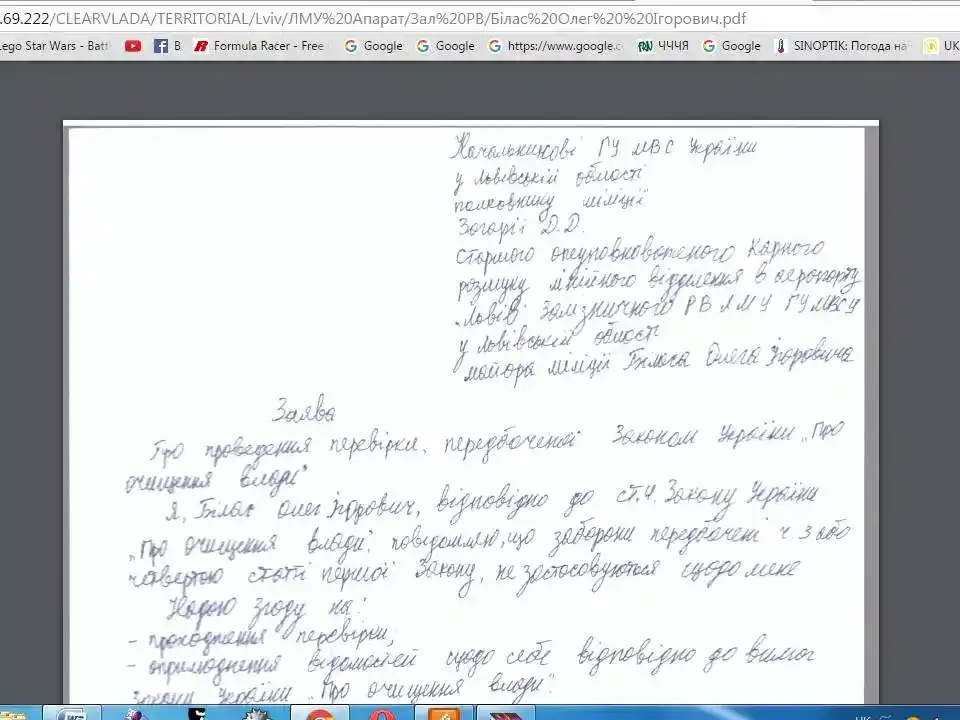 .69.222/CLEARVLADA/TERRITORIAL/Lviv/ЛМУ%20Апарат/Зал%20РВ/Білас%20Олег%20%20Ігорович.pdf
Lego Star Wars - Batt B Formula Racer - Free Google Google https://www.google.c ЧЧЧЯ Google SINOPTIK: Погода на UK
Начальникові ГУ МВС України
у Львівській області
полковнику міліції
Загарії Д.Д.
старшого оперуповноваженого Карного
розшуку лінійного відділення в аеропорту
"Львів" Залізничного РВ ЛМУ ГУМВСУ
у Львівській області
майора міліції Біласа Олега Ігоровича
Заява
Про проведення перевірки, передбаченої Законом України „Про
очищення влади"
Я, Білас Олег Ігорович, відповідно до ст.4. Закону України
„Про очищення влади", повідомляю, що заборони передбачені ч. 3 або
четвертою статті першої Закону, не застосовуються щодо мене
Надаю згоду на:
- проходження перевірки;
- оприлюднення відомостей щодо себе відповідно до вимог
Закону України „Про очищення влади".
UK